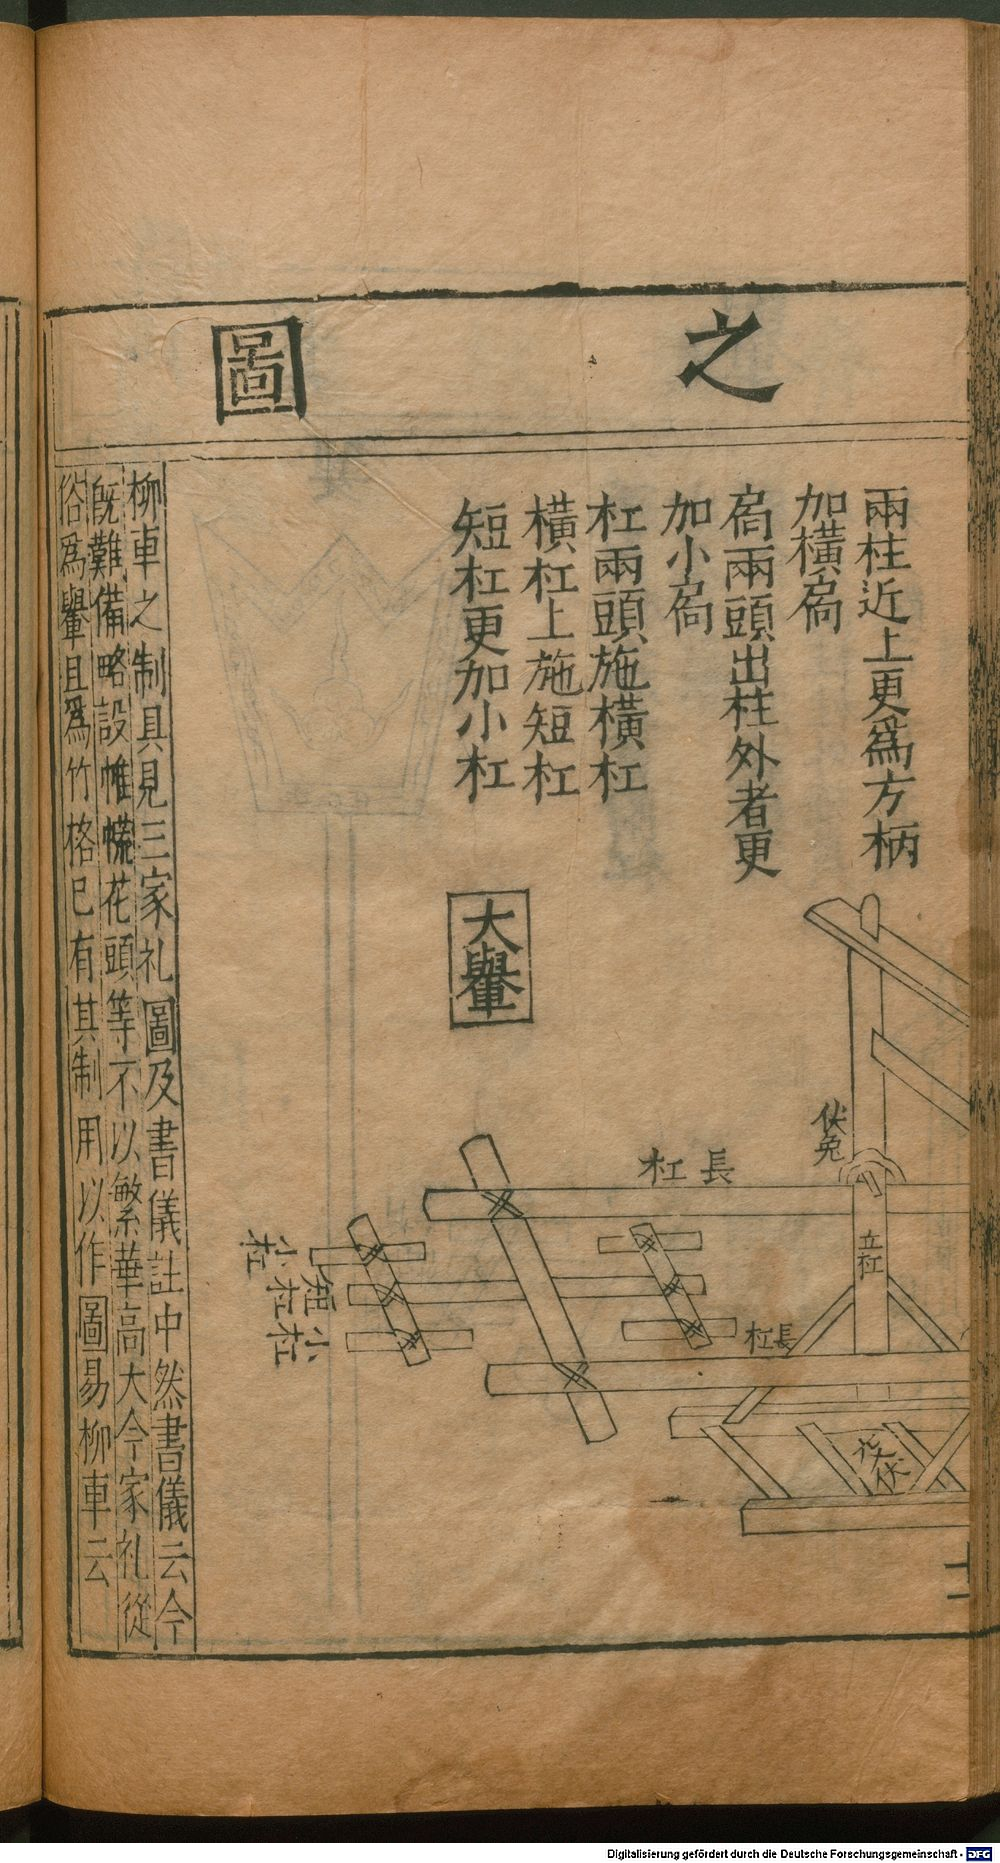 之圖
兩柱近上更爲方柄
加橫扄
扄兩頭出柱外者更
加小扄
杠兩頭施橫杠
橫杠上施短杠
短杠更加小杠
大轝
伏兔
立杠
長杠
長杠
小杠
短杠
小杠
柳車之制具見三家礼圖及書儀註中然書儀云今
既難備略設帷㡆花頭等不以繁華高大今家礼從
俗爲轝且爲竹格已有其制用以作圖易柳車云
Digitalisierung gefördert durch die Deutsche Forschungsgemeinschaft - DFG